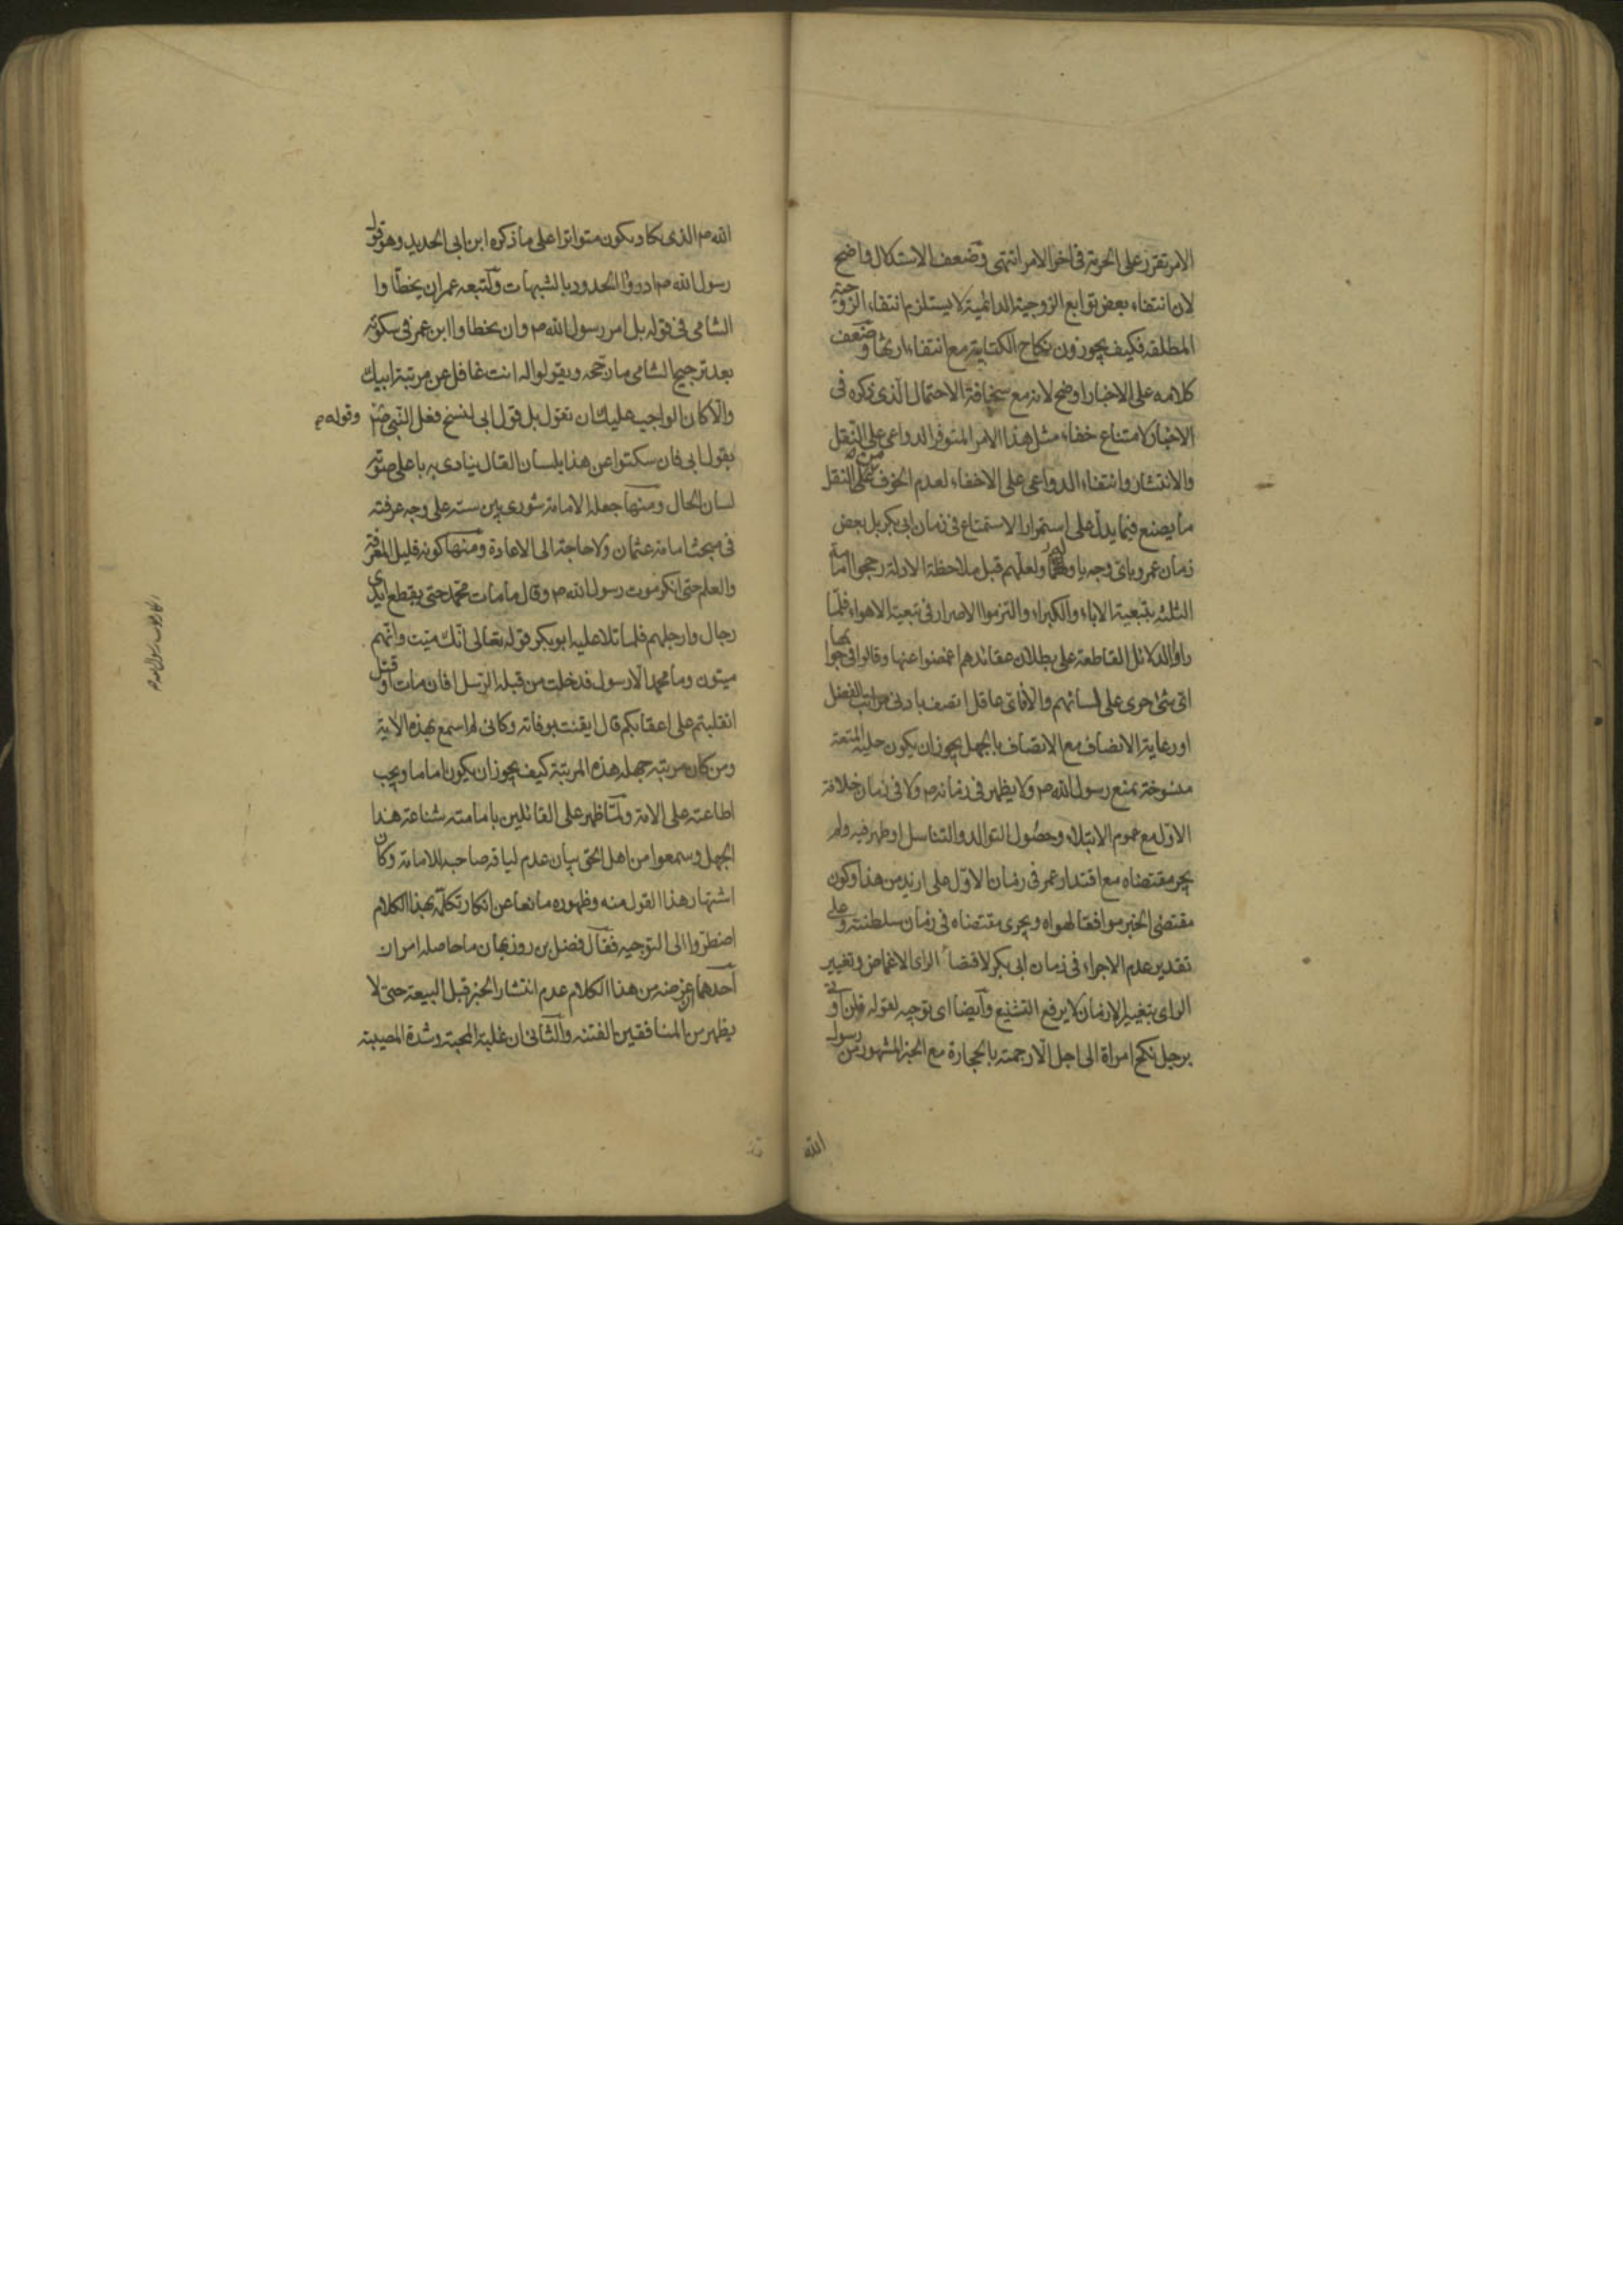 الامر تقرر على الحرمة فى اخر الامر انتهى وضعف الاستكال واضح
لان انتفاء بعض توابع الزوجية الدائمية لا يستلزم انتفاء الزوجية
المطلقة فكيف يجوزون نكاح الكتابية مع انتفاء ارثها وضعف
كلامه على الاخبار اوضح لانه مع سخافة الاحتمال الذى ذكره فى
الاخبار لامتناع خفاء مثل هذا الامر المتوفر الدواعى على النقل
والانتشار وانتفاء الدواعى على الاخفاء لعدم الخوف من النقل
ما يصنع فيما يدل على استمرار الاستمتاع فى زمان ابى بكر بل بعض
زمان عمر وباى وجه ياول ولعلهم قبل ملاحظة الادلة رجحوا امامة
الثلثة بتبعية الاباء والكبراء والتزموا الاصرار فى تبعية الاهواء فلما
راوا الدلائل القاطعة على بطلان عقائدهم اغمضوا عنها وقالوا فى جوابها
اى شئ جرى على لسانهم والا فاى عاقل اتصف بادنى مراتب الفضل
او رعاية الانصاف مع الاتصاف بالجهل يجوز ان يكون حلية المتعة
منسوخة بمنع رسول الله ص ولا يظهر فى زمانه ص ولا فى زمان خلافة
الاول مع عموم الابتلاء وحصول التوالد والتناسل او ظهر فيه ولم
يجر مقتضاه مع اقتدار عمر فى زمان الاول على ازيد من هذا وكون
مقتضى الخبر موافقا لهواه ويجرى مقتضاه فى زمان سلطنته وعلى
تقدير عدم الاجراء فى زمان ابى بكر لاقتضاء الراى الاغماض وتغيير
الراى بتغيير الازمان لا يرفع التشنيع وايضا اى توجيه لقوله فلن اوتى
برجل نكح امراة الى اجل الا رجمته بالحجارة مع الخبر المشهور من رسول
الله
الله ص الذى يكاد يكون متواترا على ما ذكره ابن ابى الحديد وهو قول
رسول الله ص ادرؤا الحدود بالشبهات ولتبعه عمر ان يخطأوا
الشامى فى قوله بل امر رسول الله ص وان يخطاوا ابن عمر فى سكوته
بعد ترجيح الشامى ما رجحه ويقولوا له انت غافل عن مرتبة ابيك
والا كان الواجب عليك ان تقول بل قول ابى لنسخ فعل النبى ص وقوله ص
بقول ابى فان سكتوا عن هذا بلسان القال ينادى به باعلى صوته
لسان الحال ومنها جعله الامامة شورى بين ستة على وجه عرفته
فى مبحث امامة عثمان ولا حاجة الى الاعادة ومنها كونه قليل المعرفة
والعلم حتى انكر موت رسول الله ص وقال ما مات محمد حتى يقطع ايدى
رجال وارجلهم فلما تلا عليه ابو بكر قوله تعالى انك ميت وانهم
ميتون وما محمد الا رسول قد خلت من قبله الرسل افان مات او قتل
انقلبتم على اعقابكم قال ايقنت بوفاته وكانى لم اسمع بهذه الاية
ومن كان مرتبة جهله هذه المرتبة كيف يجوز ان يكون اماما ويجب
اطاعته على الامة ولما ظهر على القائلين بامامته شناعة هذا
الجهل وسمعوا من اهل الحق بيان عدم لياقة صاحبه للامامة وكان
اشتهار هذا القول منه وظهوره مانعا عن انكار تكلمه بهذا الكلام
اضطروا الى التوجيه فقال فضل بن روزبهان ما حاصله امران
احدهما ان غرضه من هذا الكلام عدم انتشار الخبر قبل البيعة حتى لا
يظهر من المنافقين الفتنة والثانى ان غلبة المحبة وشدة المصيبة